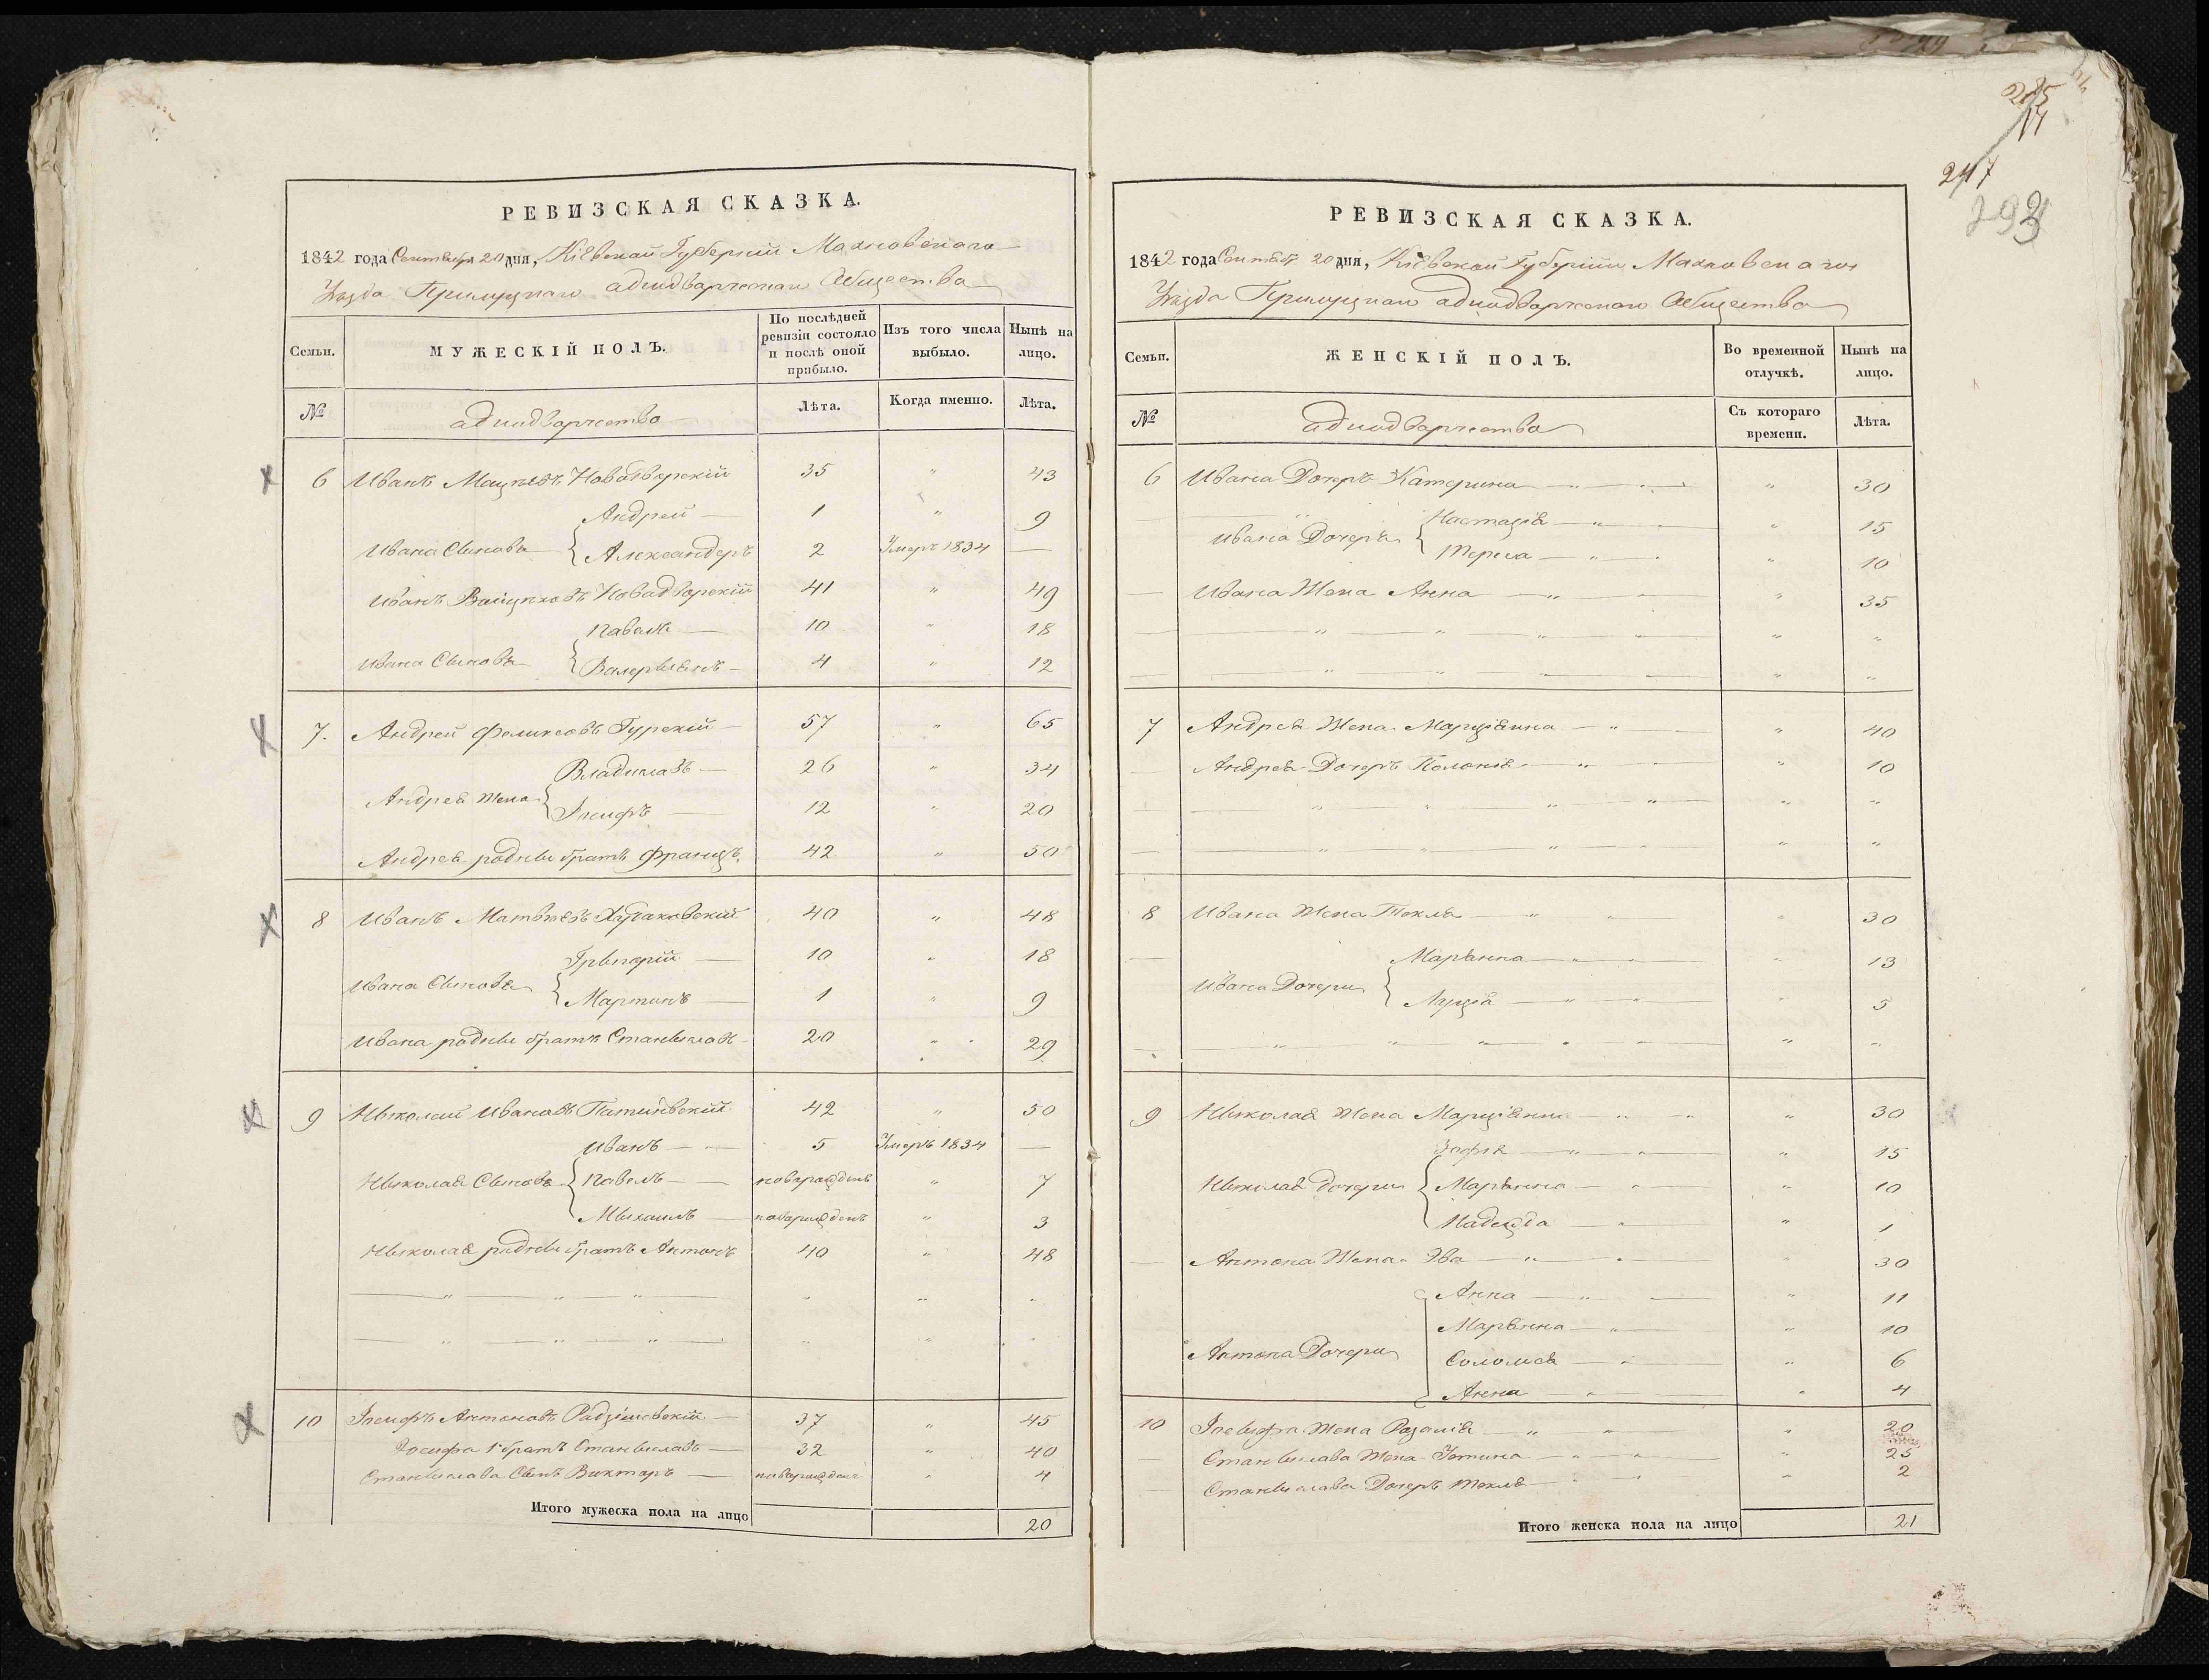 285
14
247
293
РЕВИЗСКАЯ СКАЗКА.
1842 года Сентября 20 дня, Кіевской Губерніи Махновскаго
Уѣзда Прилуцкаго аднодварческаго Общества
Семьи.
МУЖЕСКІЙ ПОЛЪ.
По послѣдней ревизіи состояло и послѣ оной прибыло.
Изъ того числа выбыло.
Нынѣ на лицо.
№
аднодварчества
Лѣта.
Когда именно.
Лѣта.
6 Иванъ Мацѣевъ Новодворскій 35 " 43
Андрей 1 " 9
Ивана Сынова Александеръ 2 Умеръ 1834 —
Иванъ Войцѣховъ Новадворскій 41 " 49
Павелъ 10 " 18
Ивана Сынова Валерьянъ 4 " 12
7. Андрей Феликсовъ Гурскій 57 " 65
Владиславъ 26 " 34
Андрея Жена Іосифъ 12 " 20
Андрея родны братъ Францъ 42 " 50
8 Иванъ Матвѣевъ 40 " 48
Грыгорій 10 " 18
Ивана Сынова Мартинъ 1 " 9
Ивана родны братъ Станыславъ 20 " 29
9 Ныколай Ивановъ 42 " 50
Иванъ 5 Умеръ 1834 —
Ныколая Сынова Павелъ новарожденъ " 7
Мыхаилъ новарожденъ " 3
Ныколая родны братъ Антонъ 40 " 48
10 Іосифъ Антоновъ Радзіиовскій 37 " 45
Іосифа 1 братъ Станыславъ 32 " 40
Станыслава Сынъ Викторъ новарожденъ " 4
Итого мужеска пола на лицо 20
РЕВИЗСКАЯ СКАЗКА.
1842 года Сентяб. 20 дня, Кіевской Губерніи Махновскаго
Уѣзда Прилуцкаго аднодварческаго Общества
Семьи.
ЖЕНСКІЙ ПОЛЪ.
Во временной отлучкѣ.
Нынѣ на лицо.
№
аднодварчества
Съ котораго времени.
Лѣта.
6 Ивана Дочеръ Катерина " 30
Настазія " 15
Ивана Дочеръ Тереса " 10
Ивана Жена Анна " 35
7 Андрея Жена Марціянна " 40
Андрея Дочеръ Полонія " 10
8 Ивана Жена Текля " 30
Марянна " 13
Ивана Дочери Луція " 5
9 Ныколая Жена Марціянна " 30
Зофія " 15
Ныколая дочери Марянна " 10
Надежда " 1
Антона Жена Эва " 30
Анна " 11
Марянна " 10
Антона Дочери Соломея " 6
Анна " 4
10 Іосыфа Жена Розалія " 20
Станыслава Жена Устина " 25
Станыслава Дочеръ Текля " 2
Итого женска пола на лицо 21